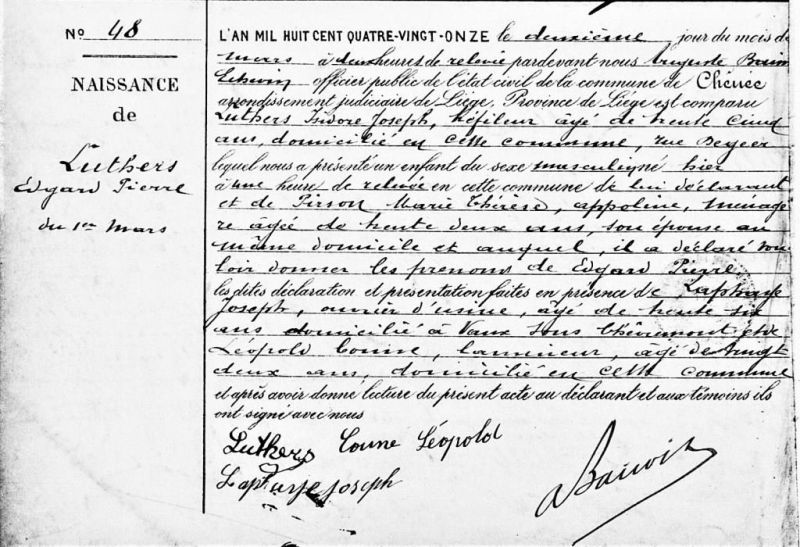 No 48
NAISSANCE
de
Luthers
Edgard Pierre
du 1er Mars
L'AN MIL HUIT CENT QUATRE-VINGT-ONZE le deuxième jour du mois de
mars à deux heures de relevée pardevant nous Auguste
officier public de l'état civil de la commune de Chênée
arrondissement judiciaire de Liège, Province de Liège est comparu
Luthers Isidore Joseph, âgé de trente cinq
ans, domicilié en cette commune, rue
lequel nous a présenté un enfant du sexe masculin, né hier
à une heure de relevée en cette commune de lui déclarant
et de Pirson Marie Thérèse, appoline, ménagè
re âgée de trente deux ans, son épouse au
même domicile et auquel, il a déclaré vou
loir donner les prenoms de Edgard Pierre
les dites déclaration et présentation faites en présence de Laphaye
Joseph, ouvrier d'usine, âgé de trente six
ans domicilié à Vaux sous Chèvremont et de
Léopold Coune, lamineur, âgé de vingt
deux ans, domicilié en cette commune
et après avoir donné lecture du présent acte au déclarant et aux témoins ils
ont signé avec nous
Luthers Coune Léopold
Laphaye Joseph